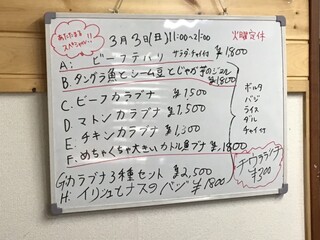 あたたまる
スペシャル!!
3月3日(日)11:00~21:00
火曜定休
A: ビーフテハリ サラダ・チャイ付 ¥1800
B. タングラ魚とシーム豆とじゃが芋のジョル ¥1800
C. ビーフカラブナ ¥1500
D. マトンカラブナ ¥1,500
E. チキンカラブナ ¥1,300
F. めちゃくちゃ大きいカトル魚ブナ ¥1,800
ボルタ
バジ
ライス
ダル
チャイ付
G. カラブナ3種セット ¥2,500
H. イリシュとナスのバジ ¥1800
¥300